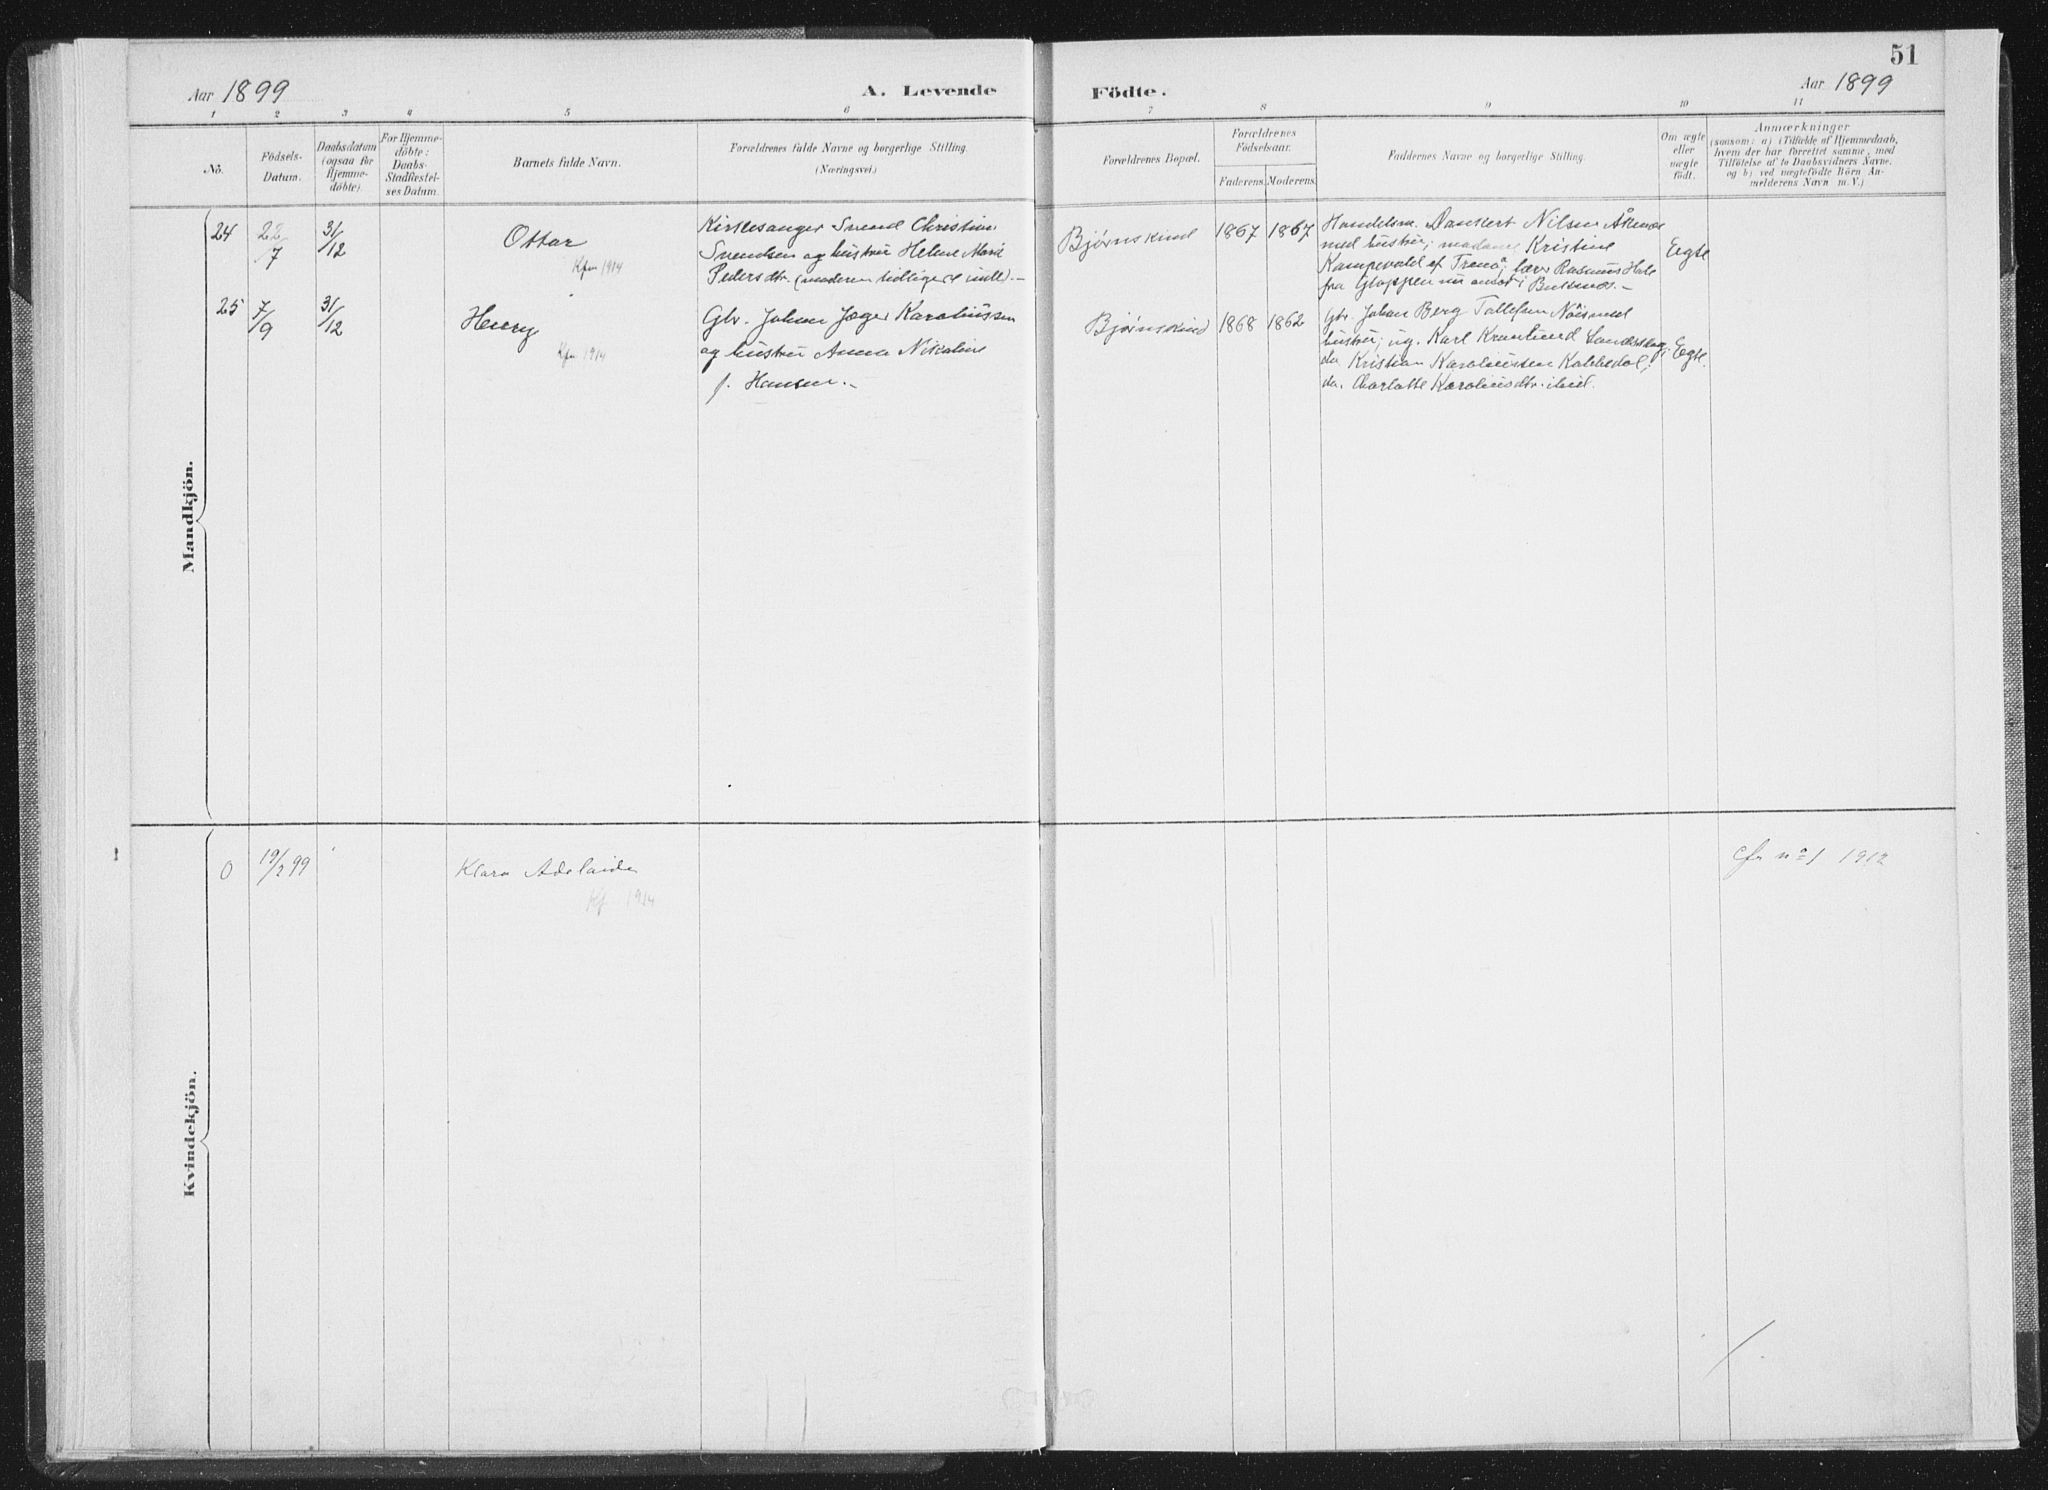 51
Aar 1899
A. Levende
Födte.
Aar 1899
1 2 3 4 5 6 7 8 9 10 11
No.
Födsels-
Datum.
Daabsdatum
(ogsaa for
Hjemme-
döbte).
For Hjemme-
döbte:
Daabs-
Stadfæstel-
ses Datum.
Barnets fulde Navn.
Forældrenes fulde Navne og borgerlige Stilling.
(Næringsvei.)
Forældrenes Bopæl.
Forældrenes
Födselsaar.
Faderens. Moderens.
Faddernes Navne og borgerlige Stilling.
Om ægte
eller
uægte
födt.
Anmærkninger
(saasom: a) i Tilfælde af Hjemmedaab,
hvem der har forrettet samme, med
Tilföielse af to Daabsvidners Navne.
og b) ved uægtefödte Börn An-
melderens Navn m. V.)
Mandkjön.
24
22/7
31/12
Ottar
Kfm 1914
Kirkesanger Svend Christian
Svendsen og hustru Helene Marie
Pedersdtr. (moderen tidligere indl.) —
Bjørnskind
1867 1867
Handelsm. Dankert Nilsen
med hustru; madame Kristine
af Trenå; lærer Rasmus
fra Gloppen nu ansat i
Egte
25
7/9
31/12
Henry
Kfm 1914
Gbr. Johan Jæger Karoliussen
og hustru Anna Nikoline
f. Hansen. —
Bjørnskind
1868 1862
Gbr. Johan Berg Tollefsen med
hustru; ug. Karl
do Kristian Karoliussen Kobbedal;
do. Charlotte Karoliusdtr. ibid.
Egte
Kvindekjön.
0
19/2 99
Klara Adelaide
Kf 1914
cfr no 1 1912